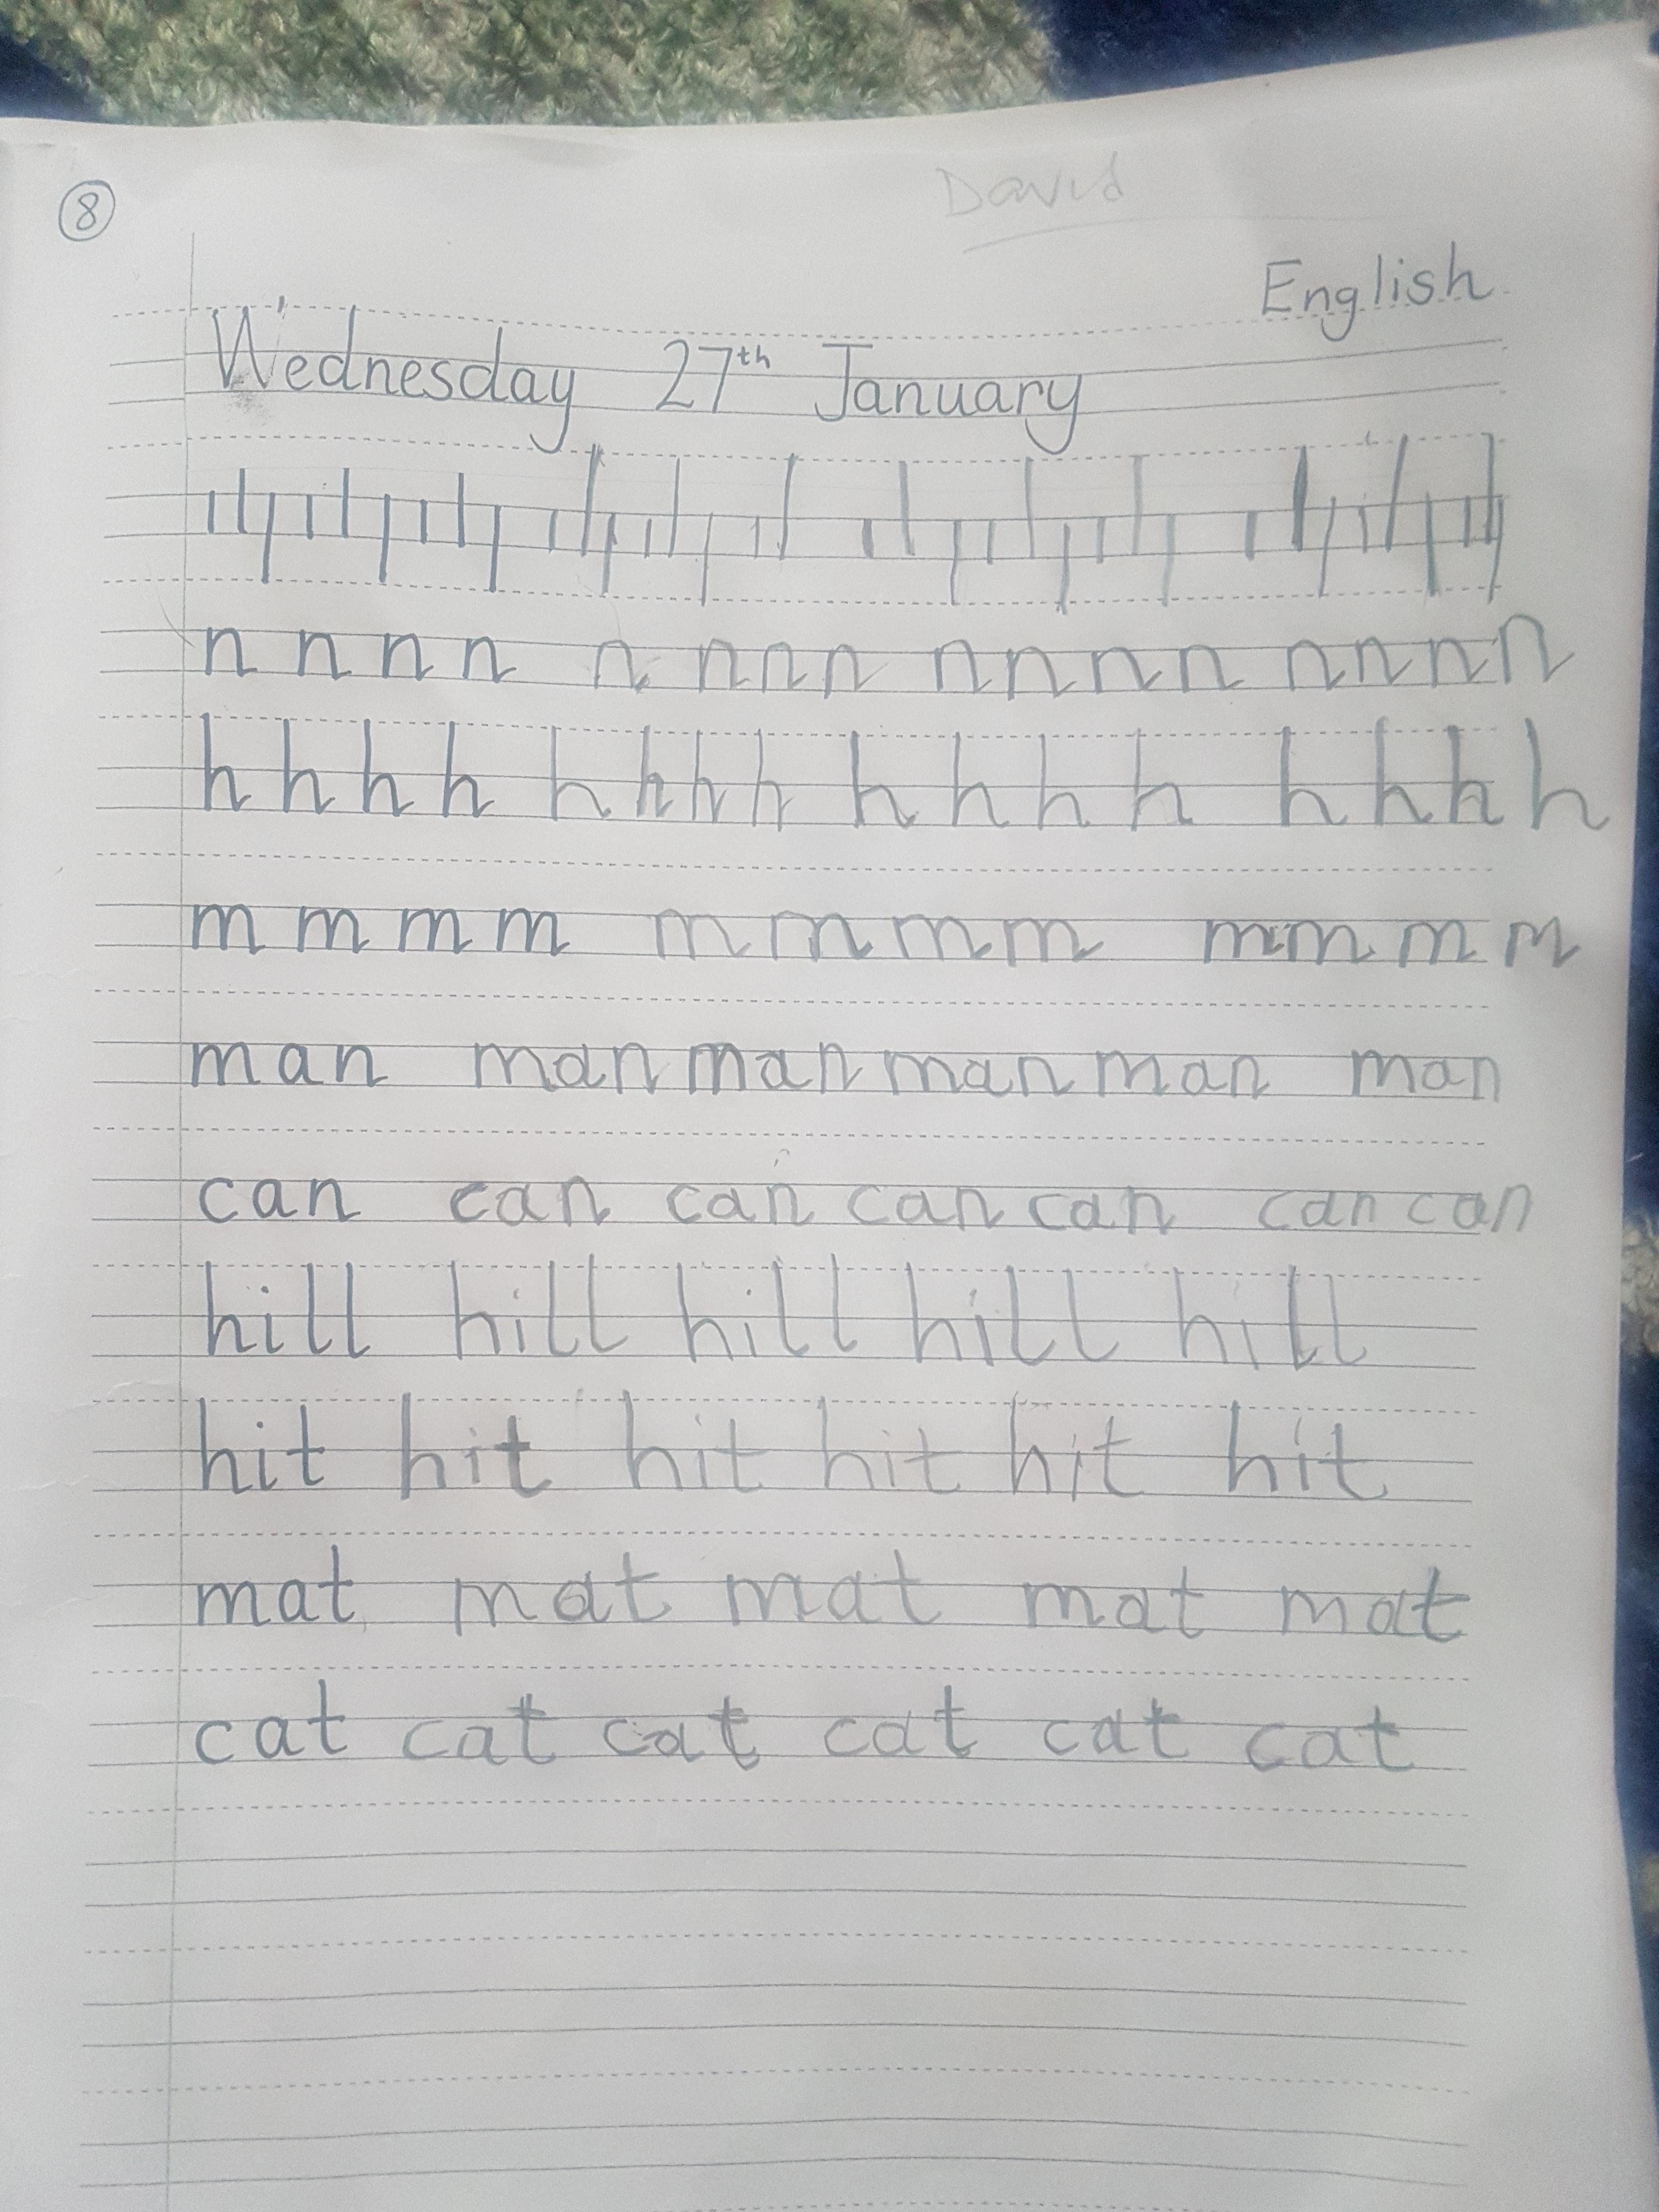 8
David
English
Wednesday 27th January
n n n n n n n n n n n n n n n n
h h h h h h h h h h h h h h h h
m m m m m m m m m m m m
man man man man man man
can can can can can can can
hill hill hill hill hill
hit hit hit hit hit hit
mat mat mat mat mat
cat cat cat cat cat cat